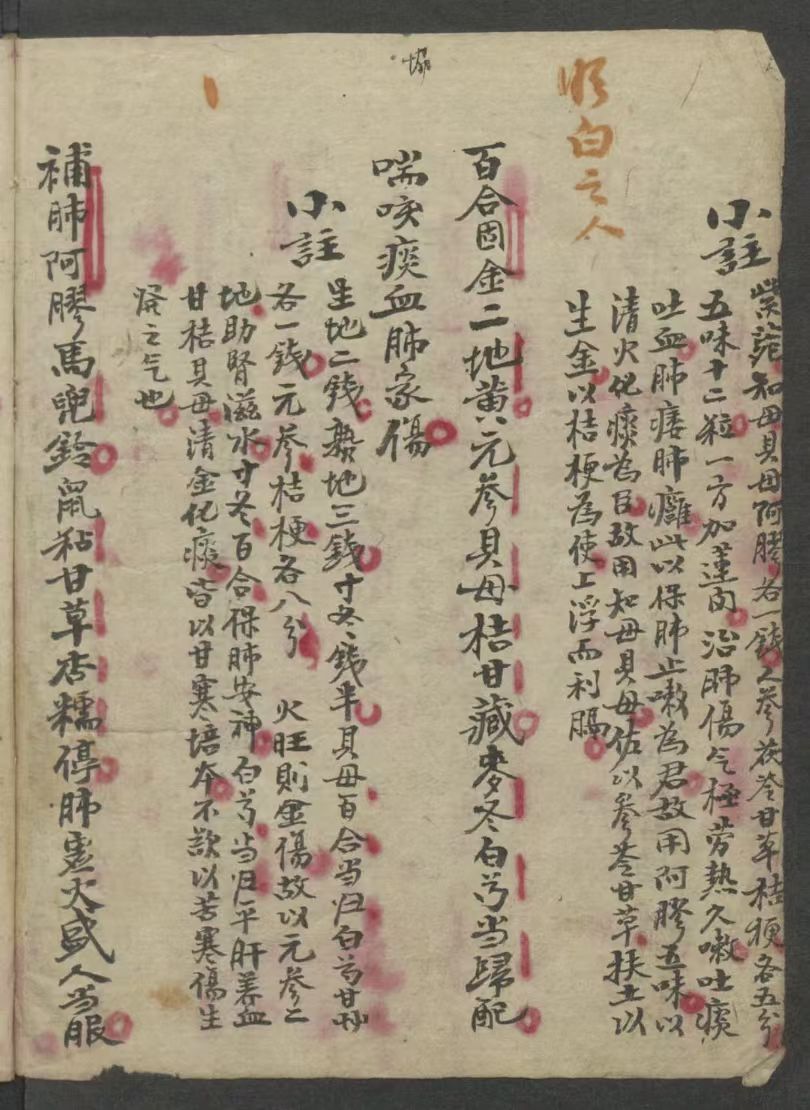 小註
紫菀知母貝母阿膠各一錢人參茯苓甘草桔梗各五分
五味十二粒一方加蓮肉 治肺傷气極劳熱久嗽吐痰
吐血肺痿肺癰此以保肺止嗽為君故用阿膠五味以
清火化痰為臣故用知母貝母佐以參苓甘草扶土以
生金以桔梗為使上浮而利膈
白之人
百合固金二地黄元參貝母桔甘藏麥冬白芍当歸配
喘咳痰血肺家傷
小註
生地二錢熟地三錢寸冬錢半貝母百合当归白芍甘艸
各一錢元參桔梗各八分 火旺則金傷故以元參二
地助腎滋水寸冬百合保肺安神白芍当归平肝养血
甘桔貝母清金化痰皆以甘寒培本不欲以苦寒傷生
發之气也
補肺阿膠馬兜鈴鼠粘甘草杏糯停肺虚火盛人当服